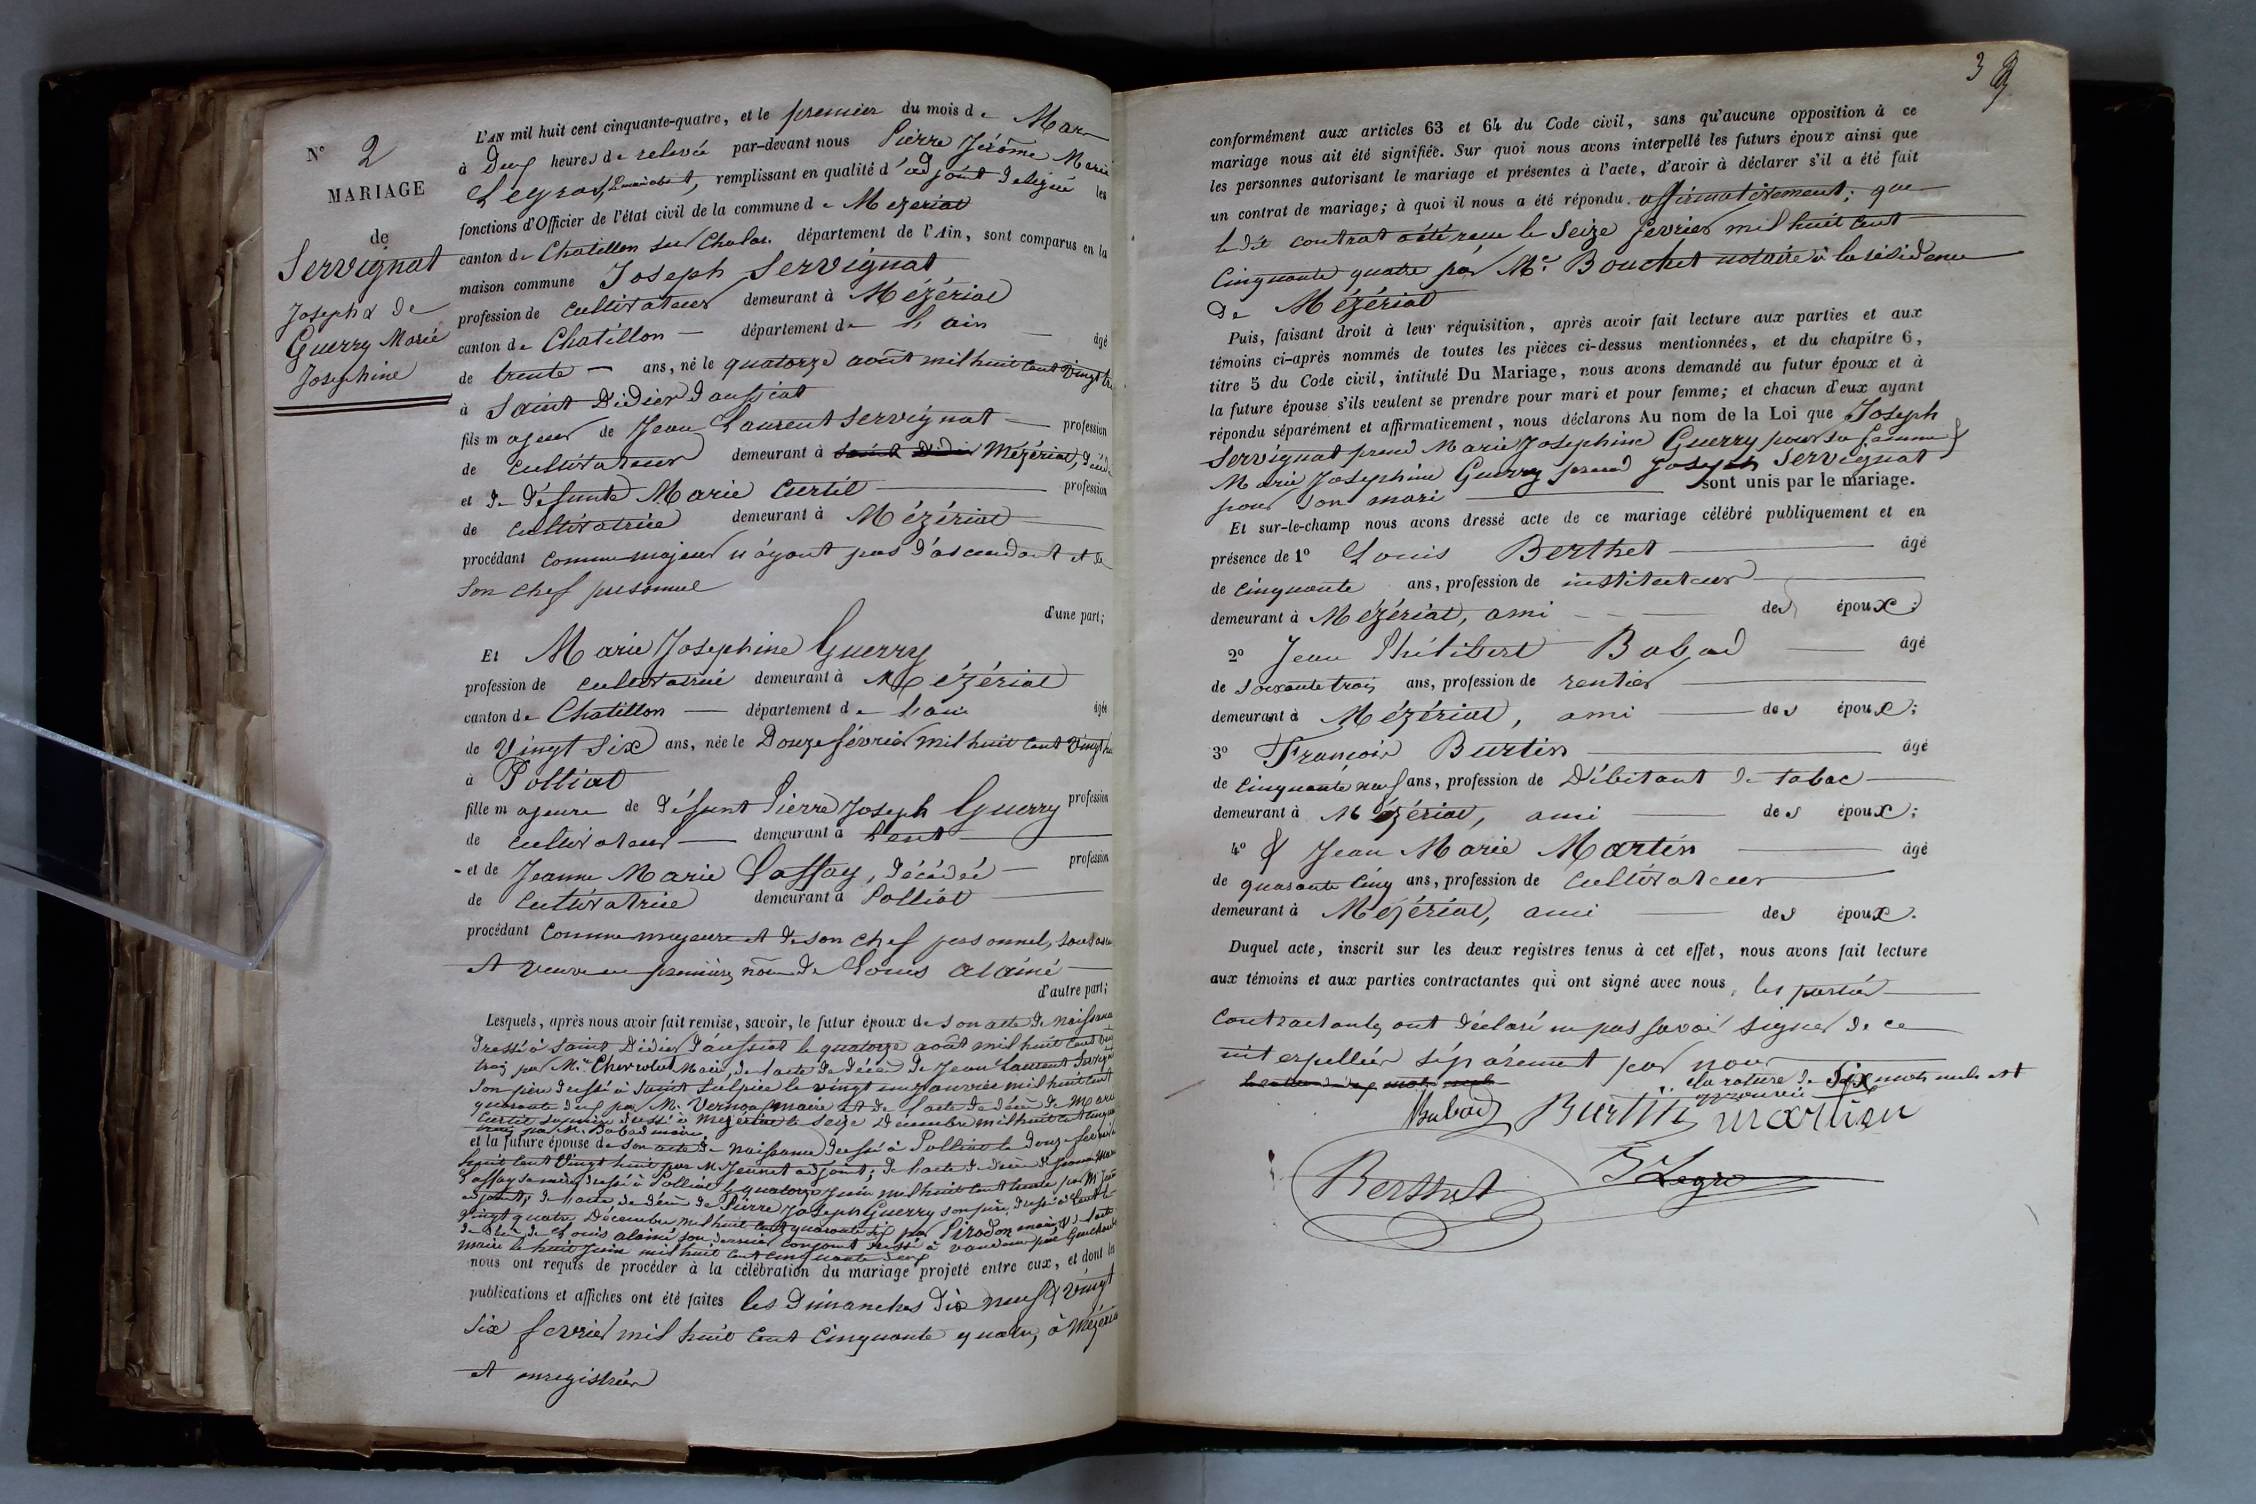 N° 2
MARIAGE
de
Servignat
Joseph & de
Guerry Marie
Josephine
L'AN mil huit cent cinquante-quatre, et le premier du mois de Mars
à deux heures de relevée par-devant nous Pierre Jérôme Marie
Legros, remplissant en qualité d'adjoint délégué les
fonctions d'Officier de l'état civil de la commune de Mézériat
canton de Chatillon sur Chalar. département de l'Ain, sont comparus en la
maison commune Joseph Servignat
profession de cultivateur demeurant à Mézériat
canton de Chatillon — département de l'ain — âgé
de trente — ans, né le quatorze août mil huit cent vingt
à Saint Didier d'aussiat
fils majeur de Jean Laurent Servignat — profession
de cultivateur demeurant à saint Didier Mézériat,
et de défunte Marie Curtil — profession
de cultivatrice demeurant à Mézériat
procédant comme majeur n'ayant pas d'ascendant et de
son chef personnel
d'une part;
Et Marie Josephine Guerry
profession de cultivatrice demeurant à Mézériat
canton de Chatillon — département de l'ain âgée
de Vingt Six ans, née le Douze février mil huit cent Vingt
à Polliat
fille majeure de défunt Pierre Joseph Guerry profession
de cultivateur — demeurant à Lent —
et de Jeanne Marie Lassay, décédée — profession
de cultivatrice demeurant à Polliat —
procédant comme majeure et de son chef personnel,
et veuve en premières noces de Louis alainé —
d'autre part;
Lesquels, après nous avoir fait remise, savoir, le futur époux de son acte de naissance
dressé à Saint Didier d'aussiat le quatorze août mil huit cent vingt
trois par Mr. Chevrolut Maire, de l'acte de décès de Jean Laurent Servignat
son père dressé à Saint Sulpice le vingt janvier mil huit cent
quarante deux par Mr. Vernoux maire et de l'acte de décès de Marie
Curtil sa mère dressé à Mézériat le seize Décembre mil huit cent
par M. Babad maire.
et la future épouse de son acte de naissance dressé à Polliat le douze février
huit cent vingt huit par M. Jeunet adjoint; de l'acte de décès de Jeanne Marie
Lassay sa mère dressé à Polliat le quatorze Juin mil huit cent trente par Mr
adjoint; de l'acte de décès de Pierre Joseph Guerry son père, dressé à Lent le
vingt quatre Décembre mil huit cent quarante six par Pirodon maire, & de l'acte
de décès de Louis alainé son dernier conjoint dressé à
maire le huit Juin mil huit cent cinquante deux
nous ont requis de procéder à la célébration du mariage projeté entre eux, et dont les
publications et affiches ont été faites les Dimanches Dix neuf & Vingt
Six fevrier mil huit cent cinquante quatre, à Mézériat
et enregistrées
3
conformément aux articles 63 et 64 du Code civil, sans qu'aucune opposition à ce
mariage nous ait été signifiée. Sur quoi nous avons interpellé les futurs époux ainsi que
les personnes autorisant le mariage et présentes à l'acte, d'avoir à déclarer s'il a été fait
un contrat de mariage; à quoi il nous a été répondu affirmativement; que
le dit contrat a été reçu le Seize fevrier mil huit cent
cinquante quatre par Me. Bouchet notaire à la résidence
de Mézériat
Puis, faisant droit à leur réquisition, après avoir fait lecture aux parties et aux
témoins ci-après nommés de toutes les pièces ci-dessus mentionnées, et du chapitre 6,
titre 5 du Code civil, intitulé Du Mariage, nous avons demandé au futur époux et à
la future épouse s'ils veulent se prendre pour mari et pour femme; et chacun d'eux ayant
répondu séparément et affirmativement, nous déclarons Au nom de la Loi que Joseph
Servignat prend Marie Josephine Guerry pour sa femme &
Marie Josephine Guerry prend Joseph Servignat
pour son mari — sont unis par le mariage.
Et sur-le-champ nous avons dressé acte de ce mariage célébré publiquement et en
présence de 1° Louis Berthet — âgé
de cinquante ans, profession de instituteur —
demeurant à Mézériat, ami — des époux;
2° Jean Philibert Babad — âgé
de soixante trois ans, profession de rentier —
demeurant à Mézériat, ami — des époux;
3° François Burtin — âgé
de cinquante neuf ans, profession de Débitant de tabac —
demeurant à Mézériat, ami — des époux;
4° & Jean Marie Martin — âgé
de quarante cinq ans, profession de cultivateur —
demeurant à Mézériat, ami — des époux.
Duquel acte, inscrit sur les deux registres tenus à cet effet, nous avons fait lecture
aux témoins et aux parties contractantes qui ont signé avec nous, les parties
contractantes ont déclaré ne pas savoir signer de ce
interpellées séparément par nous
la rature de Six mots nuls est
approuvée
Babad Burtin martin
Berthet Legro